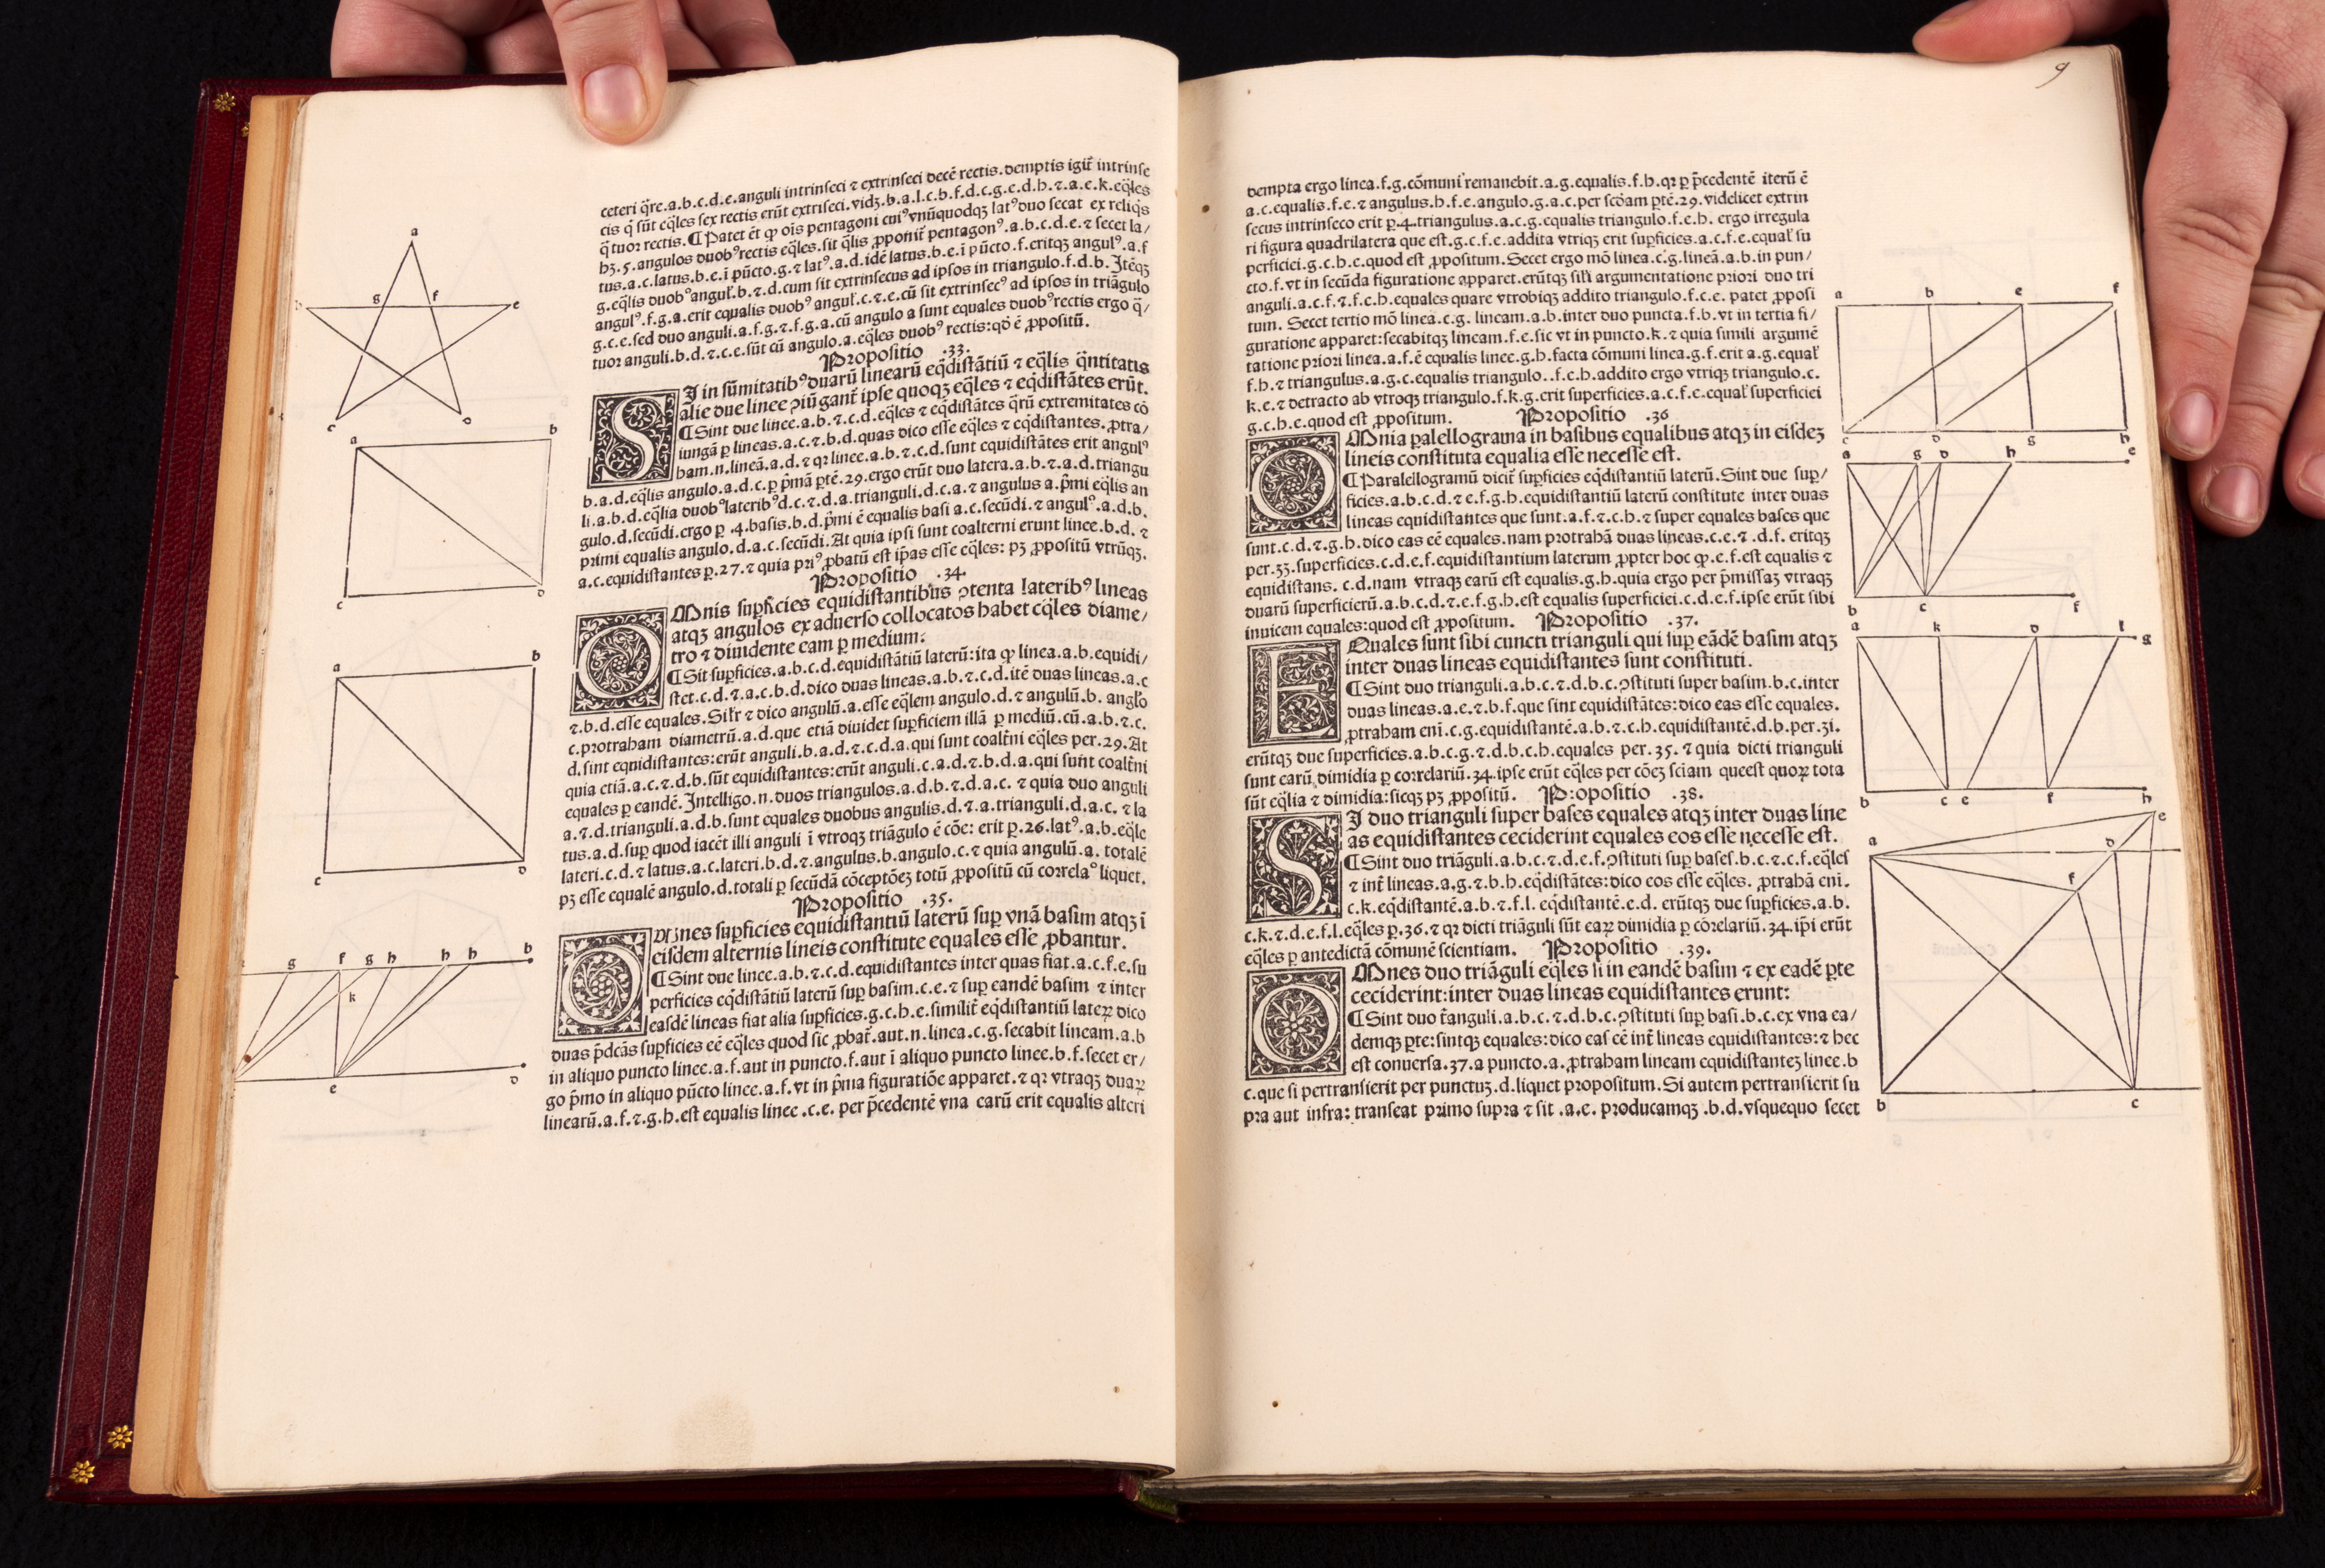 ceteri q̃re.a.b.c.d.e.anguli intrinseci ⁊ extrinseci decē rectis.demptis igit̃ intrinse
cis q̃ sūt eq̃les sex rectis erūt extriseci.vidꝫ.b.a.l.c.b.f.d.c.g.e.d.h.⁊.a.e.k.eq̃les
q̃tuor rectis.¶Patet ēt ꝙ oīs pentagoni cuiꝰvnūquodqꝫ latꝰduo secat ex reliq̃s
hꝫ.5.angulos duobꝰrectis eq̃les.sit q̃lis ꝓponit̃ pentagonꝰ.a.b.c.d.e.⁊ secet la/
tus.a.c.latus.b.e.ī pūcto.g.⁊ latꝰ.a.d.idē latus.b.e.ī pūcto.f.eritqꝫ angulꝰ.a.f
g.eq̃lis duobꝰangul̃.b.⁊.d.cum sit extrinsecus ad ipsos in triangulo.f.d.b. Itēqꝫ
angulꝰ.f.g.a.erit equalis duobꝰ angul̃.c.⁊.e.cū sit extrinsecꝰ ad ipsos in triāgulo
g.c.e.sed duo anguli.a.f.g.⁊.f.g.a.cū angulo a sunt equales duobꝰrectis ergo q̃/
tuor anguli.b.d.⁊.c.e.sūt cū angulo.a.eq̃les duobꝰ rectis:qđ ē ꝓpositū.
Propositio .33.
SI in sūmitatibꝰduarū linearū eq̃distātiū ⁊ eq̃lis q̃ntitatis
alie due linee ꝯiūgant̃ ipse quoqꝫ eq̃les ⁊ eq̃distātes erūt.
¶Sint due linee.a.b.⁊.c.d.eq̃les ⁊ eq̃distātes q̃rū extremitates cō
iungā ꝑ lineas.a.c.⁊.b.d.quas dico esse eq̃les ⁊ eq̃distantes. ꝓtra/
ham.n.lineā.a.d.⁊ qꝛ linee.a.b.⁊.c.d.sunt equidistātes erit angulꝰ
b.a.d.eq̃lis angulo.a.d.c.ꝑ p̄mā ꝑtē.29.ergo erūt duo latera.a.b.⁊.a.d.triangu
li.a.b.d.eq̃lia duobꝰlateribꝰd.c.⁊.d.a.trianguli.d.c.a.⁊ angulus a.p̄mi eq̃lis an
gulo.d.secūdi.ergo ꝑ .4.basis.b.d.p̄mi ē equalis basi a.c.secūdi.⁊ angulꝰ.a.d.b.
primi equalis angulo.d.a.c.secūdi.At quia ipsi sunt coalterni erunt linee.b.d. ⁊
a.c.equidistantes ꝑ.27.⁊ quia priꝰ ꝓbatū est ip̄as esse eq̃les: pꝫ ꝓpositū vtrūqꝫ.
Propositio .34.
OMnis sup̱ficies equidistantibus ꝯtenta lateribꝰ lineas
atqꝫ angulos ex aduerso collocatos habet eq̃les diame/
tro ⁊ diuidente eam ꝑ medium:
¶Sit sup̱ficies.a.b.c.d.equidistātiū laterū:ita ꝙ linea.a.b.equidi/
stet.c.d.⁊.a.c.b.d.dico duas lineas.a.b.⁊.c.d.itē duas lineas.a.c
⁊.b.d.esse equales.Sil̃r ⁊ dico angulū.a.esse eq̃lem angulo.d.⁊ angulū.b. angl̃o
c.protraham diametrū.a.d.que etiā diuidet sup̱ficiem illā ꝑ mediū.cū.a.b.⁊.c.
d.sint equidistantes:erūt anguli.b.a.d.⁊.c.d.a.qui sunt coalt̃ni eq̃les per.29.At
quia etiā.a.c.⁊.d.b.sūt equidistantes:erūt anguli.c.a.d.⁊.b.d.a.qui sunt coalt̃ni
equales ꝑ eandē.Intelligo.n.duos triangulos.a.d.b.⁊.d.a.c. ⁊ quia duo anguli
a.⁊.d.trianguli.a.d.b.sunt equales duobus angulis.d.⁊.a.trianguli.d.a.c. ⁊ la
tus.a.d.sup̱ quod iacēt illi anguli ī vtroqꝫ triāgulo ē cōe: erit ꝑ.26.latꝰ.a.b.eq̃le
lateri.c.d.⁊ latus.a.c.lateri.b.d.⁊ angulus.b.angulo.c.⁊ quia angulū.a. totalē
pꝫ esse equalē angulo.d.totali ꝑ secūdā cōceptōeꝫ totū ꝓpositū cū correlaº liquet.
Propositio .35.
OMnes sup̱ficies equidistantiū laterū sup̱ vnā basim atqꝫ ī
eisdem alternis lineis constitute equales esse ꝓbantur.
¶Sint due linee.a.b.⁊.c.d.equidistantes inter quas fiat.a.c.f.e.su
perficies eq̃distātiū laterū sup̱ basim.c.e.⁊ sup̱ eandē basim ⁊ inter
easdē lineas fiat alia sup̱ficies.g.c.h.e.similit̃ eq̃distantiū lateꝝ dico
duas p̄dcās sup̱ficies eē eq̃les quod sic ꝓbat̃.aut.n.linea.c.g.secabit lineam.a.b
in aliquo puncto linee.a.f.aut in puncto.f.aut ī aliquo puncto linee.b.f.secet er/
go p̄mo in aliquo pūcto linee.a.f.vt in p̄ma figuratiōe apparet.⁊ qꝛ vtraqꝫ duaꝝ
linearū.a.f.⁊.g.h.est equalis linee .c.e. per p̄cedentē vna earū erit equalis alteri
a
b g f e
c d
a b
c d
a b
c d
g f g h h h b
k
e d
9
dempta ergo linea.f.g.cōmuni remanebit.a.g.equalis.f.h.qꝛ ꝑ p̄cedentē iterū ē
a.c.equalis.f.e.⁊ angulus.h.f.e.angulo.g.a.c.per scđam ꝑtē.29.videlicet extrin
secus intrinseco erit ꝑ.4.triangulus.a.c.g.equalis triangulo.f.e.h. ergo irregula
ri figura quadrilatera que est.g.c.f.e.addita vtriqꝫ erit sup̱ficies.a.c.f.e.equal̃ su
perficiei.g.c.h.e.quod est ꝓpositum. Secet ergo mō linea.c.g.lineā.a.b.in pun/
cto.f.vt in secūda figuratione apparet.erūtqꝫ sil̃i argumentatione priori duo tri
anguli.a.c.f.⁊.f.c.h.equales quare vtrobiqꝫ addito triangulo.f.c.e. patet ꝓposi
tum. Secet tertio mō linea.c.g. lineam.a.b.inter duo puncta.f.b.vt in tertia fi/
guratione apparet:secabitqꝫ lineam.f.e.sic vt in puncto.k.⁊ quia simili argumē
tatione priori linea.a.f.ē equalis linee.g.h.facta cōmuni linea.g.f.erit a.g.equal̃
f.h.⁊ triangulus.a.g.c.equalis triangulo..f.e.h.addito ergo vtriqꝫ triangulo.c.
k.e.⁊ detracto ab vtroqꝫ triangulo.f.k.g.erit superficies.a.c.f.e.equal̃ superficiei
g.c.h.e.quod est ꝓpositum. Propositio .36
OMnia palellograma in basibus equalibus atqꝫ in eisdeꝫ
lineis constituta equalia esse necesse est.
¶Paralellogramū dicit̃ sup̱ficies eq̃distantiū laterū.Sint due sup̱/
ficies.a.b.c.d.⁊ e.f.g.h.equidistantiū laterū constitute inter duas
lineas equidistantes que sunt.a.f.⁊.c.h.⁊ super equales bases que
sunt.c.d.⁊.g.h.dico eas eē equales.nam protrahā duas lineas.c.e.⁊ .d.f. eritqꝫ
per.33.superficies.c.d.e.f.equidistantium laterum ꝓpter hoc ꝙ.e.f.est equalis ⁊
equidistans. c.d.nam vtraqꝫ earū est equalis.g.h.quia ergo per p̄missaꝫ vtraqꝫ
duarū superficierū.a.b.c.d.⁊.e.f.g.h.est equalis superficiei.c.d.e.f.ipse erūt sibi
inuicem equales:quod est ꝓpositum. Propositio .37.
EQuales sunt sibi cuncti trianguli qui sup̱ eādē basim atqꝫ
inter duas lineas equidistantes sunt constituti.
¶Sint duo trianguli.a.b.c.⁊.d.b.c.ꝯstituti super basim.b.c.inter
duas lineas.a.e.⁊.b.f.que sint equidistātes: dico eas esse equales.
ꝓtraham eni̅.c.g.equidistantē.a.b.⁊.c.h.equidistantē.d.b.per.31.
erūtqꝫ due superficies.a.b.c.g.⁊.d.b.c.h.equales per.35.⁊ quia dicti trianguli
sunt earū dimidia ꝑ correlariū.34.ipse erūt eq̃les per cōeꝫ sciam queest quoꝝ tota
sūt eq̃lia ⁊ dimidia:sicqꝫ pꝫ ꝓpositū. P:opositio .38.
SI duo trianguli super bases equales atqꝫ inter duas line
as equidistantes ceciderint equales eos esse necesse est.
¶Sint duo triāguli.a.b.c.⁊.d.e.f.ꝯstituti sup̱ bases.b.c.⁊.c.f.eq̃les
⁊ int̃ lineas.a.g.⁊.b.h.eq̃distātes:dico eos esse eq̃les. ꝓtrahā eni̅.
c.k.eq̃distantē.a.b.⁊.f.l. eq̃distantē.e.d. erūtqꝫ due sup̱ficies.a.b.
c.k.⁊.d.e.f.l.eq̃les ꝑ.36.⁊ qꝛ dicti triāguli sūt eaꝝ dimidia ꝑ corelariū.34.ip̄i erūt
eq̃les ꝑ antedictā cōmunē scientiam. Propositio .39.
OMnes duo triāguli eq̃les si in eandē basim ⁊ ex eadē ꝑte
ceciderint:inter duas lineas equidistantes erunt:
¶Sint duo t̃anguli.a.b.c.⁊.d.b.c.ꝯstituti sup̱ basi.b.c.ex vna ea/
demqꝫ ꝑte:sintqꝫ equales:dico eas eē int̃ lineas equidistantes:⁊ hec
est conuersa.37.a puncto.a.ꝓtraham lineam equidistanteꝫ linee.b
c.que si pertransierit per punctuꝫ.d.liquet propositum.Si autem pertransierit su
pra aut infra: transeat primo supra ⁊ sit .a.e. producamqꝫ .b.d.vsquequo secet
a b e f
c d g h
a g d h e
b c f
a k d l g
b c e f h
a d e
f
b c